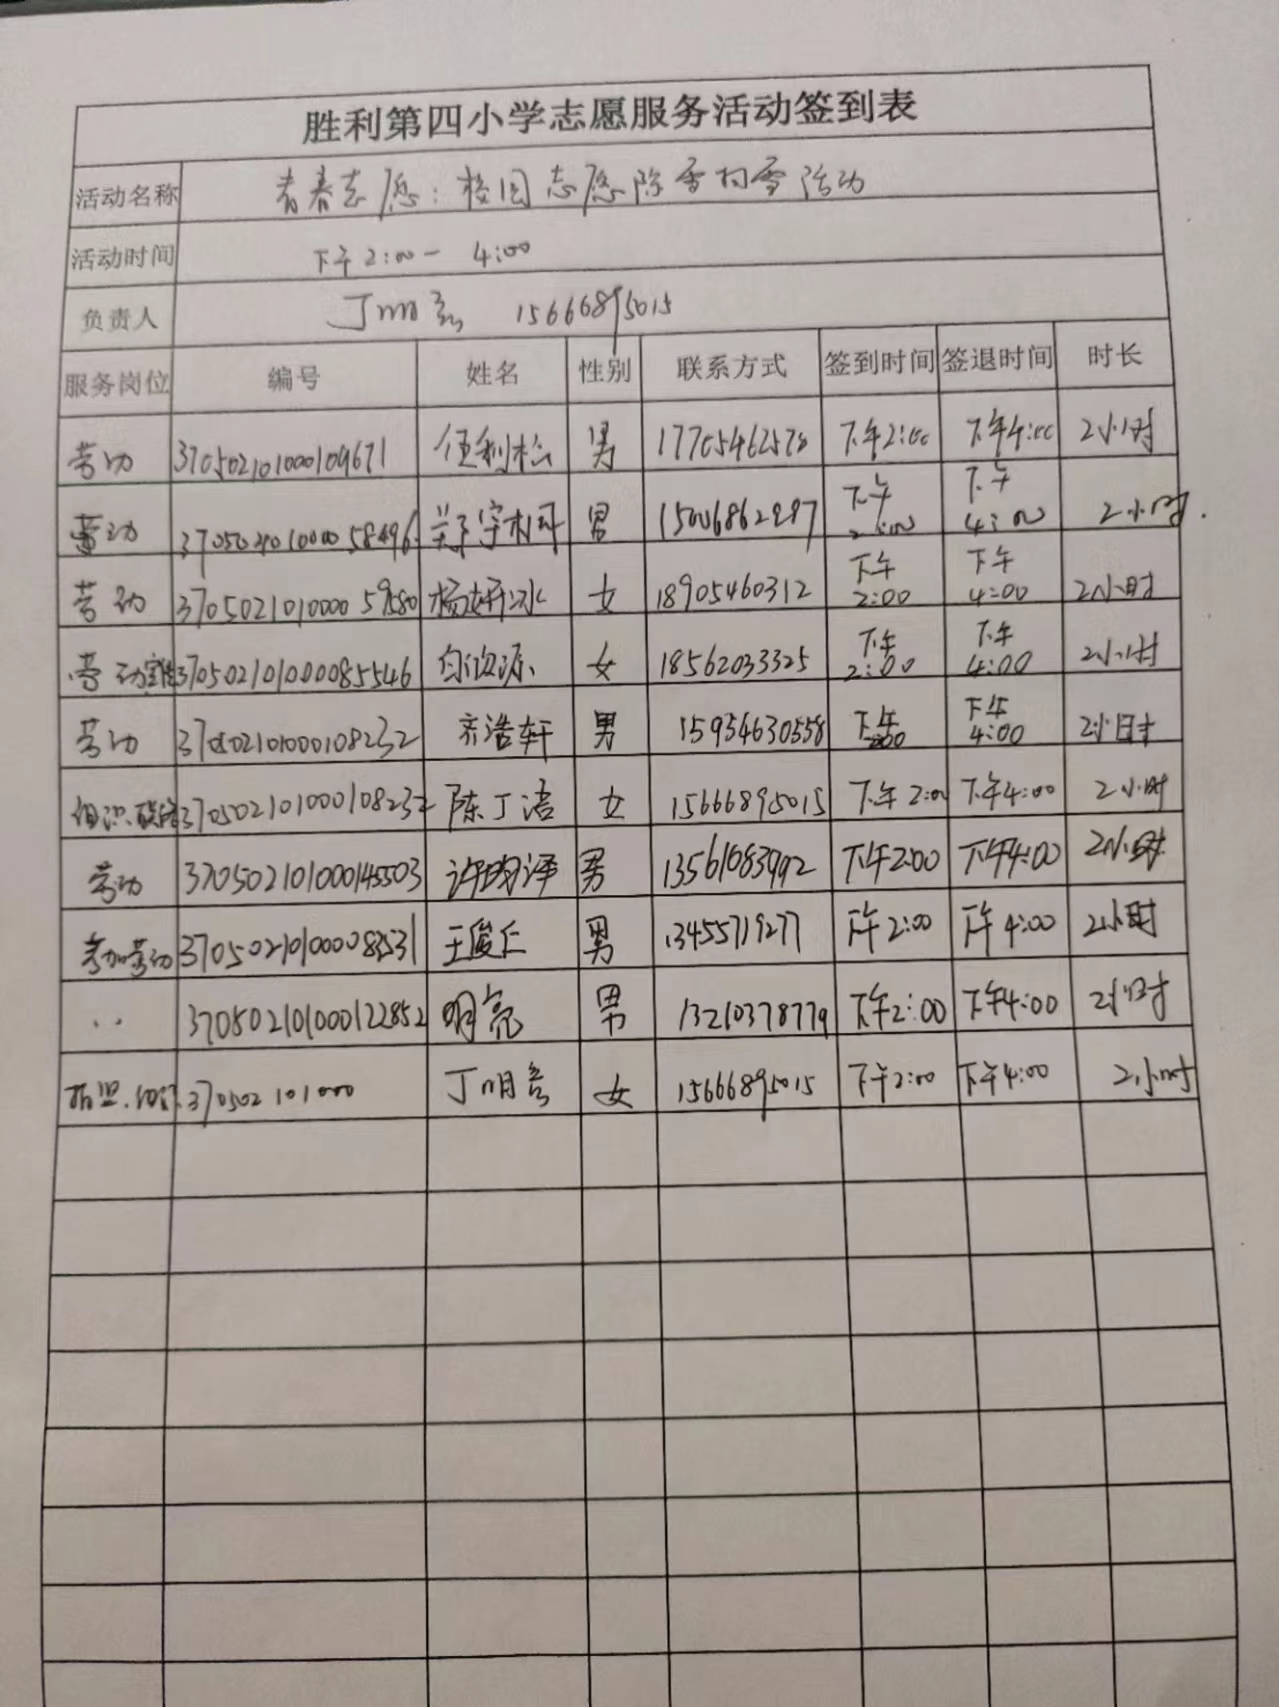 胜利第四小学志愿服务活动签到表
活动名称 青春志愿:校园志愿除雪扫雪活动
活动时间 下午2:00- 4:00
负责人 丁明 15666895015
服务岗位 编号 姓名 性别 联系方式 签到时间 签退时间 时长
劳动 370502101000109671 任利松 男 17705462578 下午2:00 下午4:00 2小时
劳动 370502101000058496 宇柯 男 15006862297 下午2:00 下午4:00 2小时.
劳动 370502101000059580 杨妍冰 女 18905460312 下午2:00 下午4:00 2小时
劳动 370502101000085546 女 18562033325 下午2:00 下午4:00 2小时
劳动 370502101000108232 齐浩轩 男 15954630558 下午 下午4:00 2小时
组织. 37050210100010823 陈丁语 女 15666895015 下午2:00 下午4:00 2小时
劳动 370502101000145503 许泽 男 13561083992 下午2:00 下午4:00 2小时
劳动 370502101000083531 王俊仁 男 13455719277 下午2:00 下午4:00 2小时
.. 370502101000122852 明亮 男 13210378779 下午2:00 下午4:00 2小时
370502101000 丁明 女 15666895015 下午2:00 下午4:00 2小时